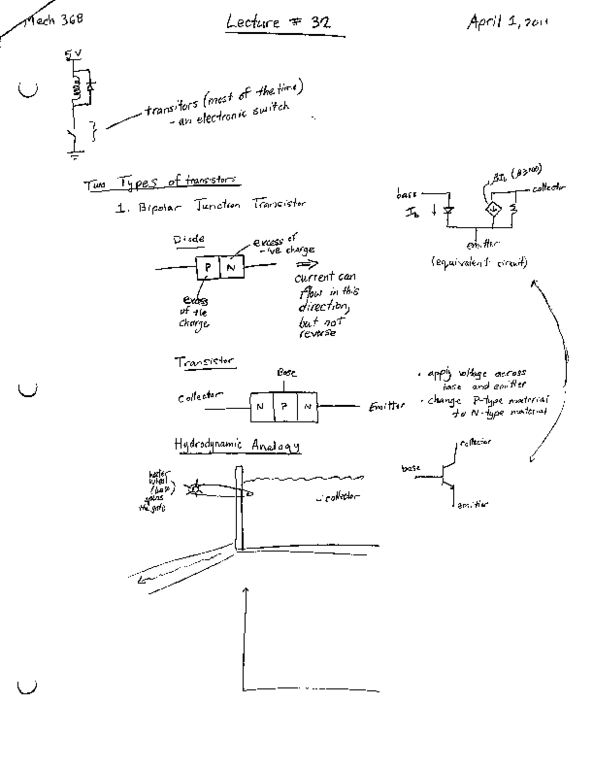 Mech 368
Lecture # 32
April 1, 2011
5V
transitors (most of the time)
- an electronic switch
Two Types of transistors
1. Bipolar Junction Transistor
base
Ib
βIb (β≈100)
collector
emitter
(equivalent circuit)
Diode
excess of
-'ve charge
P N
excess
of +ve
charge
current can
flow in this
direction,
but not
reverse
Transistor
Base
Collector
N P N
Emitter
• apply voltage across
base and emitter
• change P-type material
to N-type material
Hydrodynamic Analogy
water
wheel
(base)
opens
the gate
collector
collector
base
emitter